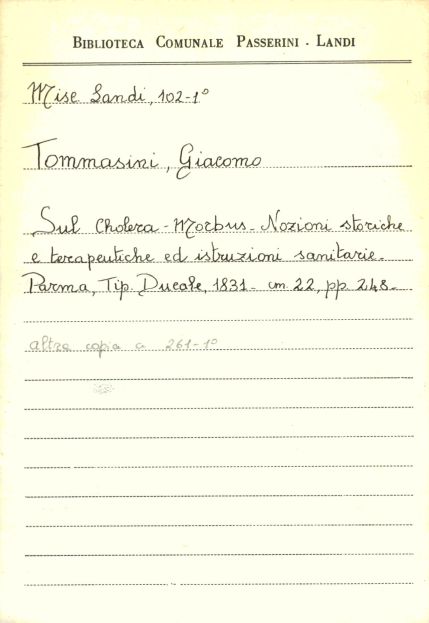 BIBLIOTECA COMUNALE PASSERINI - LANDI
Misc Landi, 102-1°
Tommasini, Giacomo
Sul Cholera-Morbus. Nozioni storiche
e terapeutiche ed istruzioni sanitarie.
Parma, Tip. Ducale, 1831 - cm. 22, pp. 248.
altra copia a 261-1°